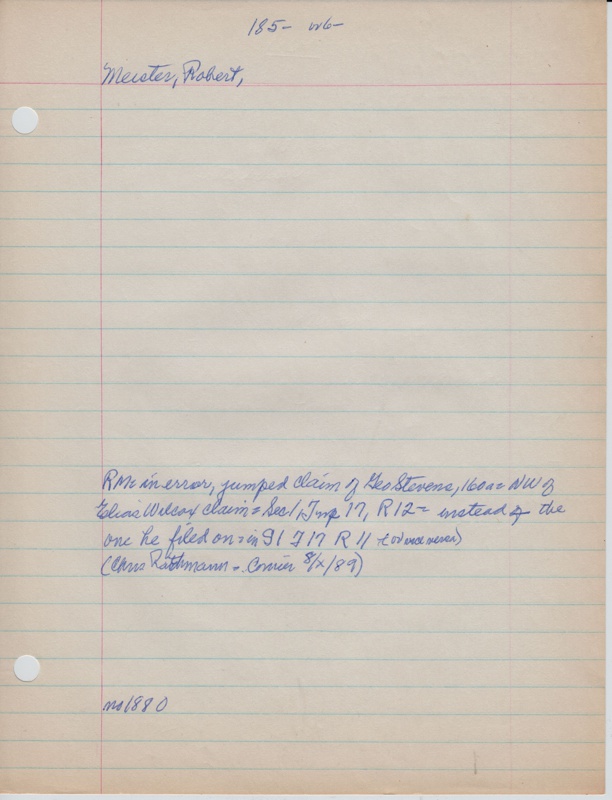 185- W6-
Meister, Robert,
RM= in error, jumped claim of Geo Stevens, 160a= NW of
Elias Wilcox claim= Sec 1, Tmp 17, R12= instead of the
one he filed on= in S1 T17 R11 (or vice versa)
(Chris Rathmann - Courier 8/x/89)
no 1880